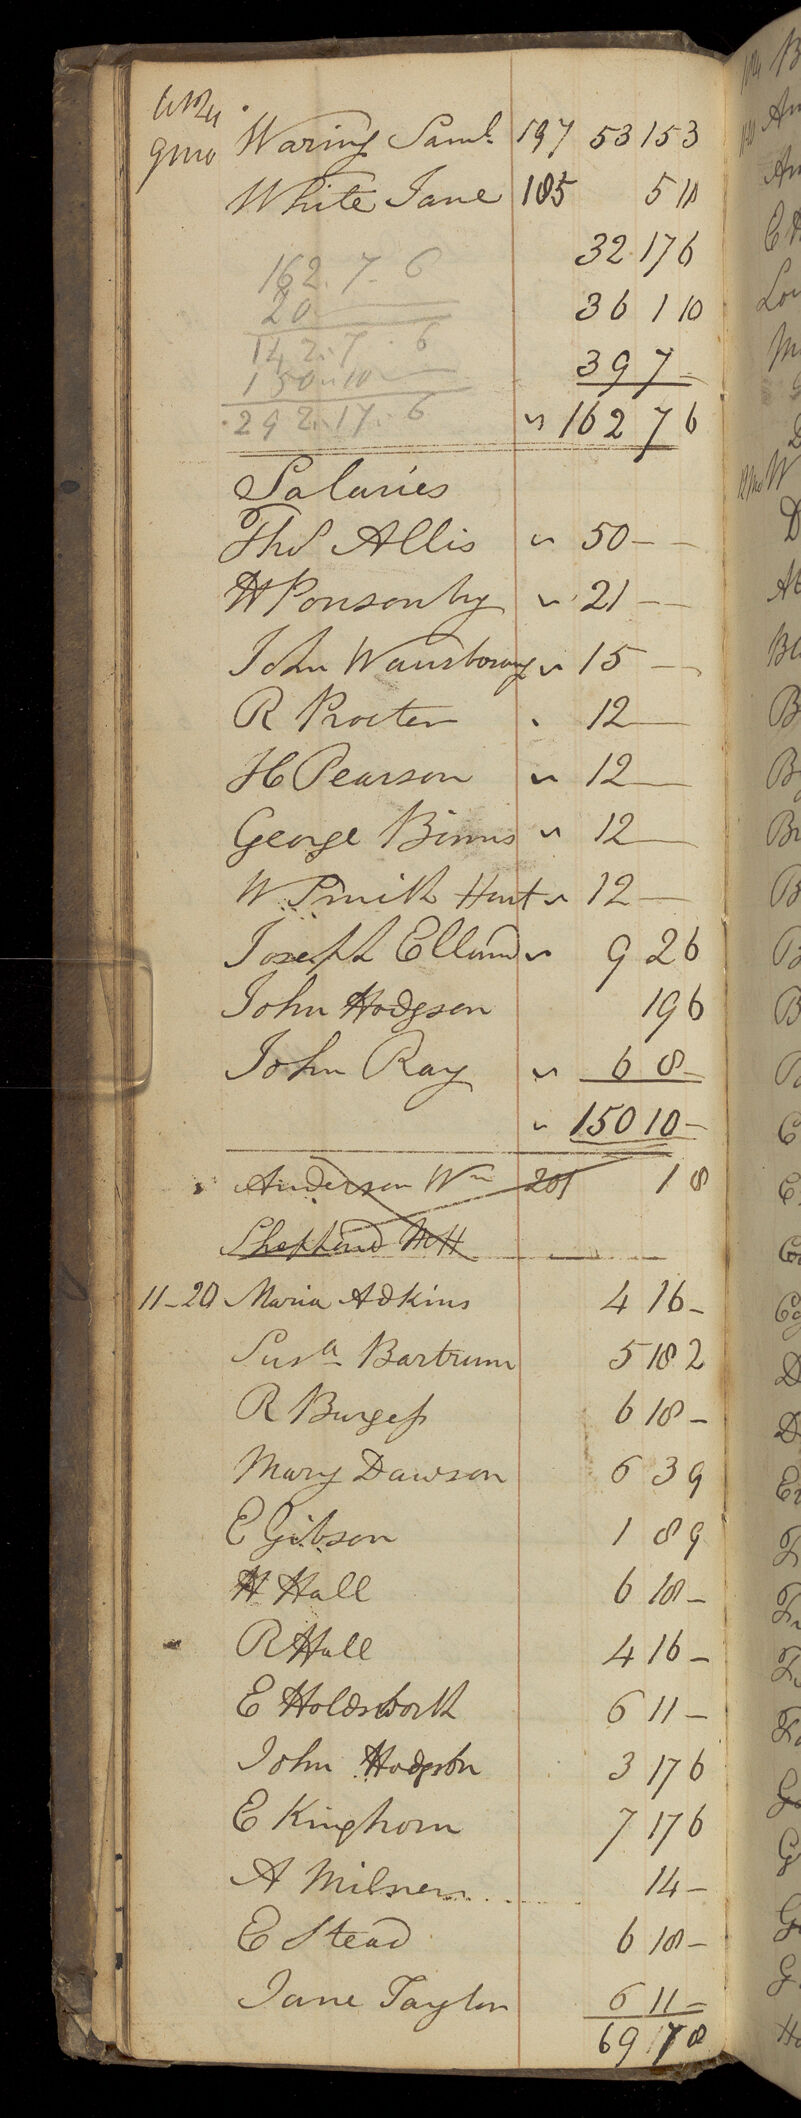 9mo Waring Saml. 197 53 15 3
White Jane 185 5 18
32 17 6
162. 7. 6
36 1 10
20
142. 7. 6
39 7 -
150 " 10 -
292. 17. 6
" 162 7 6
Salaries
Thos Allis " 50 - -
H Ponsonby " 21 - -
John " 15 - -
R Procter " 12 -
H Pearson " 12 -
George Binns " 12 -
W Smith Hurt " 12 -
Joseph Elland " 9 2 6
John Hodgson 19 6
John Ray " 6 8 -
" 150 10 -
Anderson Wm 201 1 8
Shepherd MH
11-20 Maria Adkins 4 16 -
Susa Bartrum 5 18 2
R Burgess 6 18 -
Mary Dawson 6 3 9
E Gibson 1 8 9
H Hall 6 18 -
R Hall 4 16 -
E Holdsworth 6 11 -
John Hodgson 3 17 6
E Kinghorn 7 17 6
A Milner 14 -
E Stead 6 18 -
Jane Taylor 6 11 -
69 17 8